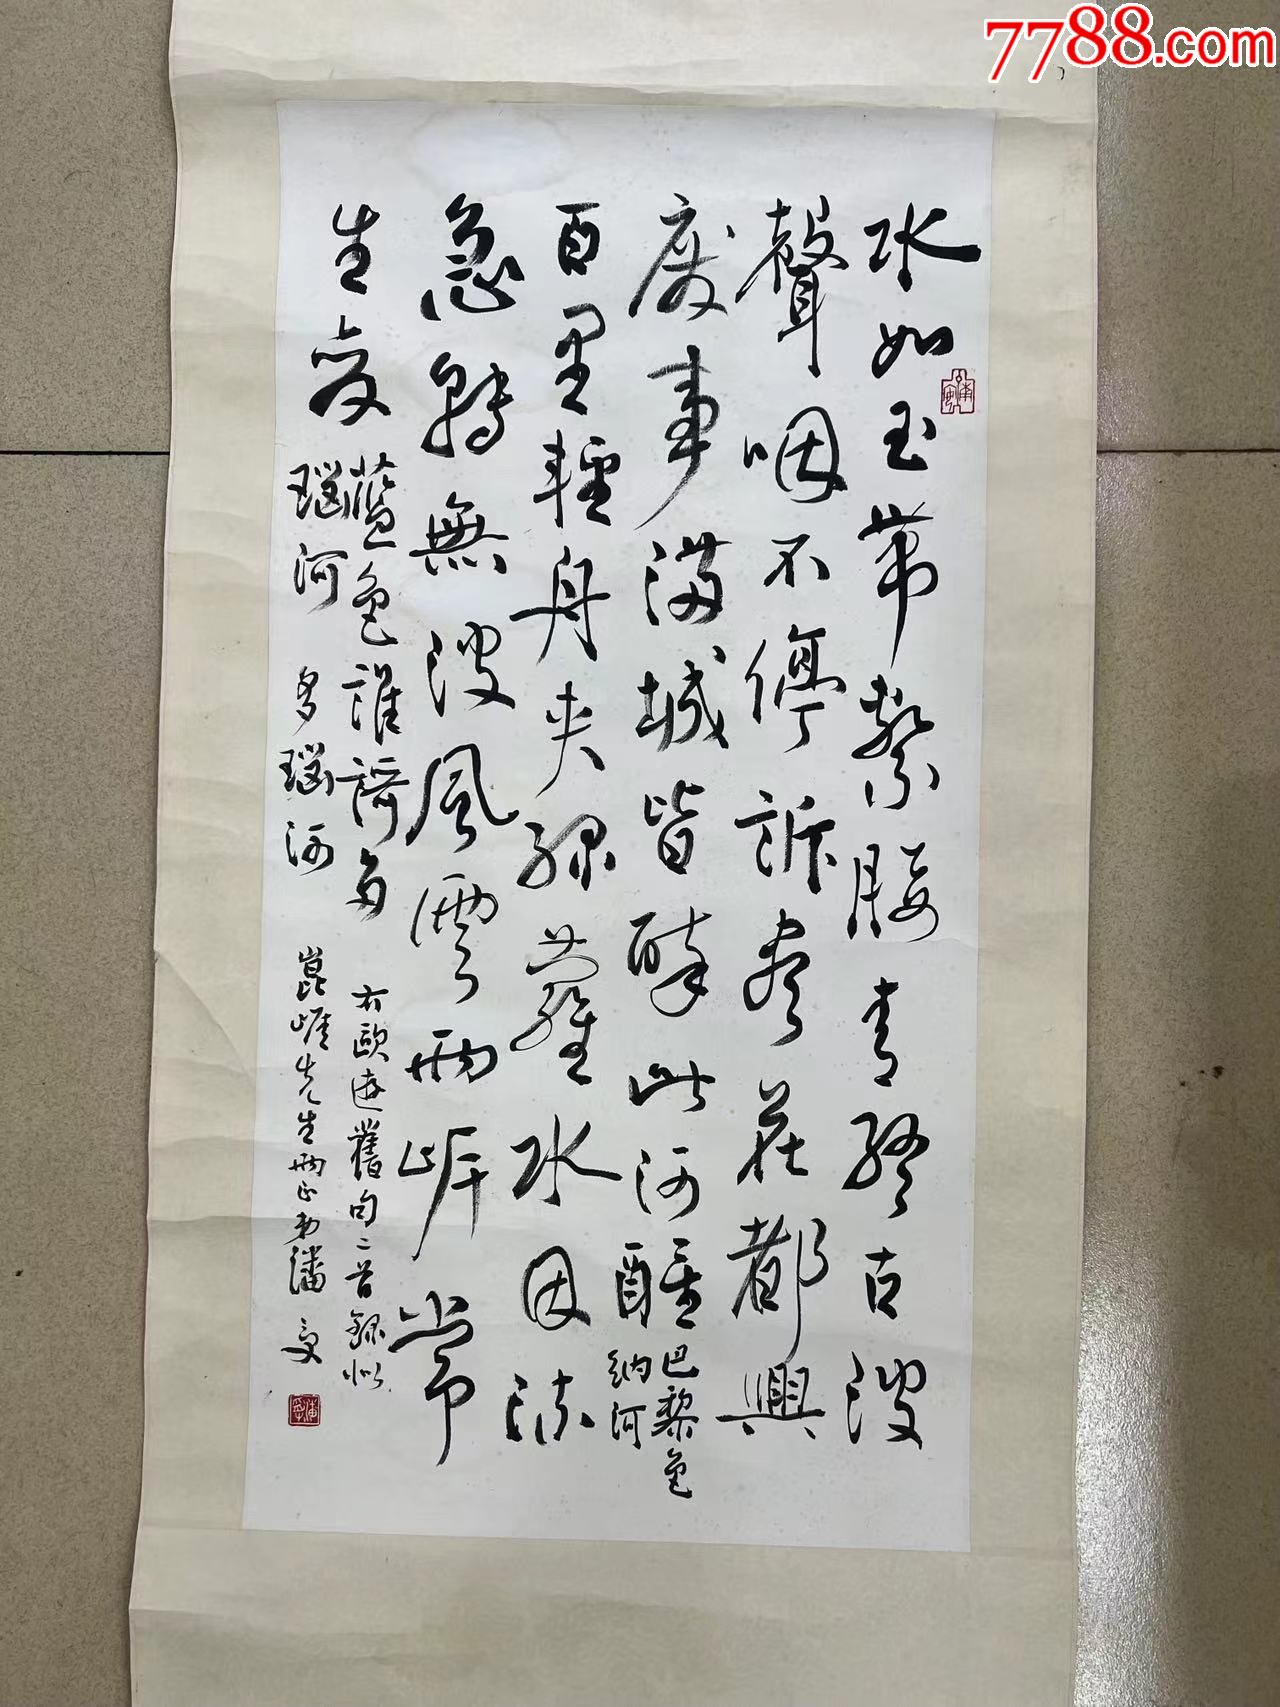 7788.com
水如玉帶繫腰青終古波
聲咽不停訴盡花都興
廢事滿城皆醉此河醒
巴黎色
納河
百里輕舟夾綠蘿水因流
急轉無波風雲兩岸常
生變
藍色誰謌多
瑙河
多瑙河
右歐遊舊句二首錄似
崑崖先生兩正弟潘受